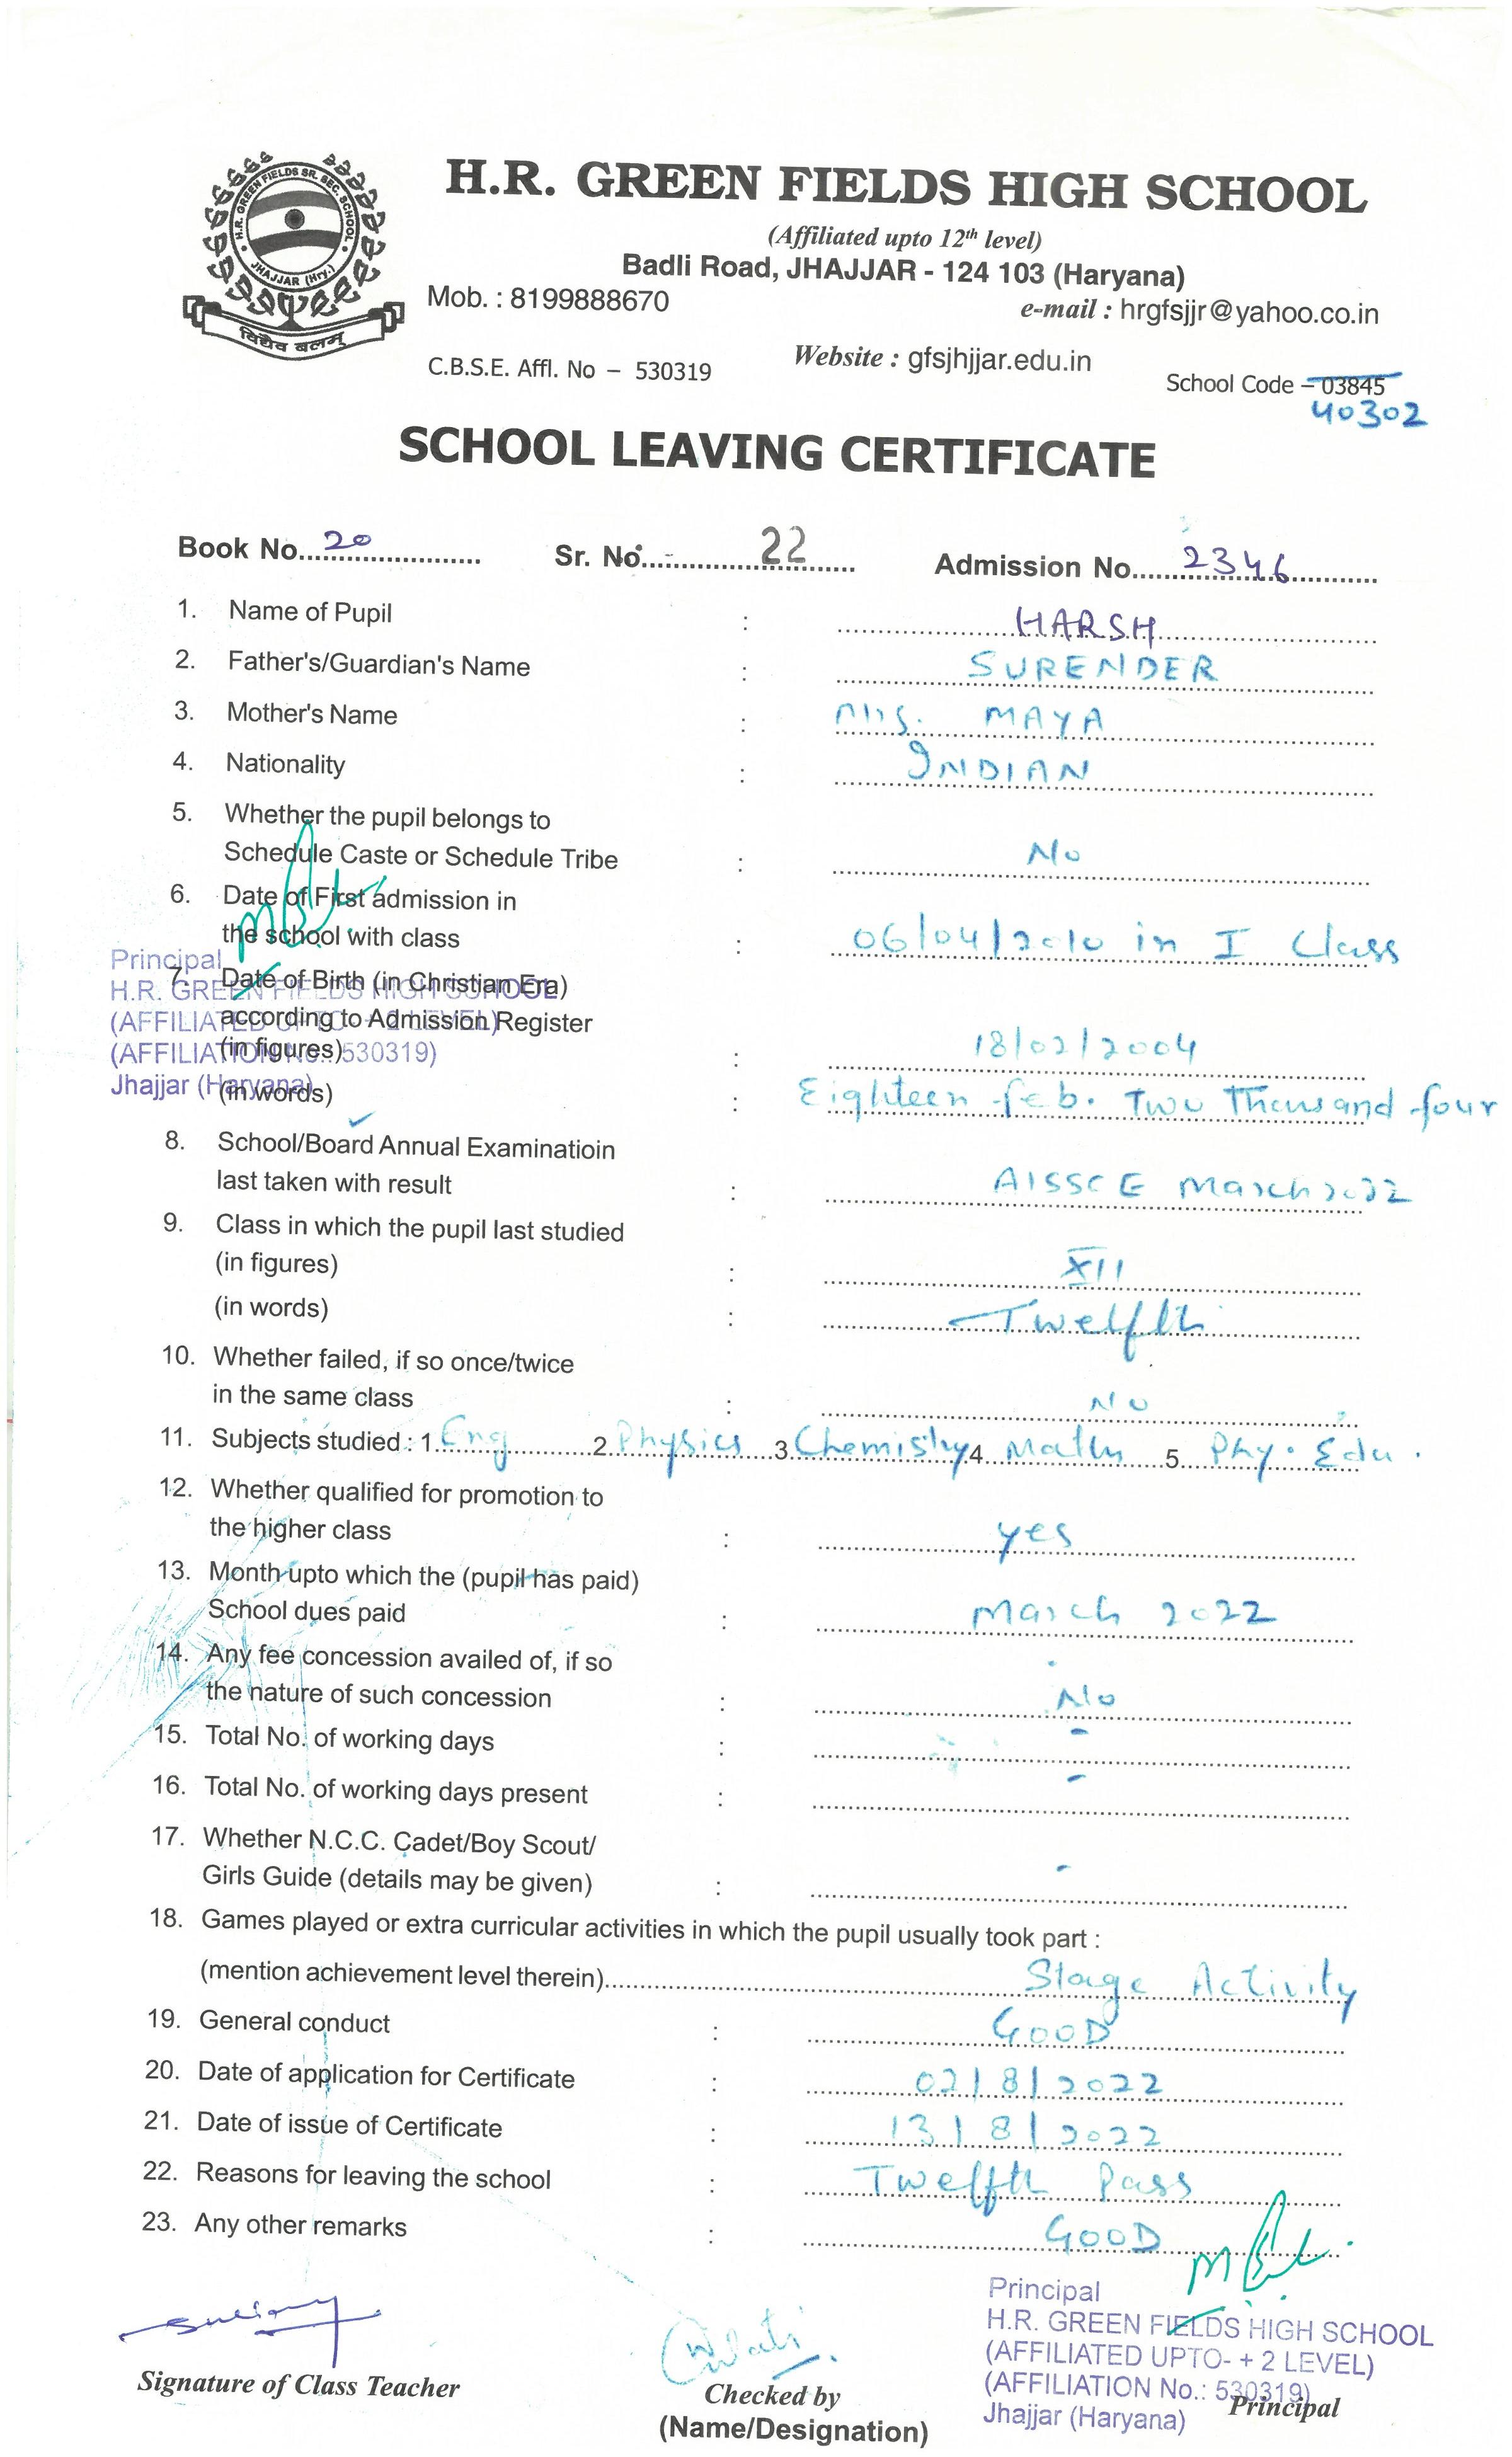 H.R. GREEN FIELDS SR. SEC. SCHOOL
JHAJJAR (Hry.)
विद्यैव बलम्
H.R. GREEN FIELDS HIGH SCHOOL
(Affiliated upto 12th level)
Badli Road, JHAJJAR - 124 103 (Haryana)
Mob. : 8199888670 e-mail : hrgfsjjr@yahoo.co.in
C.B.S.E. Affl. No – 530319 Website : gfsjhjjar.edu.in School Code – 03845
40302
SCHOOL LEAVING CERTIFICATE
Book No. 20 Sr. No. 22 Admission No. 2346
1. Name of Pupil : HARSH
2. Father's/Guardian's Name : SURENDER
3. Mother's Name : Mrs. MAYA
4. Nationality : INDIAN
5. Whether the pupil belongs to
Schedule Caste or Schedule Tribe : No
6. Date of First admission in
the school with class : 06/04/2010 in I Class
Principal
H.R. GREEN FIELDS HIGH SCHOOL
(AFFILIATED UPTO- + 2 LEVEL)
(AFFILIATION No.: 530319)
Jhajjar (Haryana)
7. Date of Birth (in Christian Era)
according to Admission Register
(in figures) : 18/02/2004
(in words) : Eighteen feb. Two Thousand four
8. School/Board Annual Examinatioin
last taken with result : AISSCE March 2022
9. Class in which the pupil last studied
(in figures) : XII
(in words) : Twelfth
10. Whether failed, if so once/twice
in the same class : No
11. Subjects studied : 1. Eng 2. Physics 3. Chemistry 4. Math 5. Phy. Edu.
12. Whether qualified for promotion to
the higher class : yes
13. Month upto which the (pupil has paid)
School dues paid : March 2022
14. Any fee concession availed of, if so
the nature of such concession : No
15. Total No. of working days : -
16. Total No. of working days present : -
17. Whether N.C.C. Cadet/Boy Scout/
Girls Guide (details may be given) : -
18. Games played or extra curricular activities in which the pupil usually took part :
(mention achievement level therein) Stage Activity
19. General conduct : GOOD
20. Date of application for Certificate : 02/8/2022
21. Date of issue of Certificate : 13/8/2022
22. Reasons for leaving the school : Twelfth Pass
23. Any other remarks : GOOD
Principal
H.R. GREEN FIELDS HIGH SCHOOL
(AFFILIATED UPTO- + 2 LEVEL)
(AFFILIATION No.: 530319)
Jhajjar (Haryana)
Signature of Class Teacher Checked by Principal
(Name/Designation)